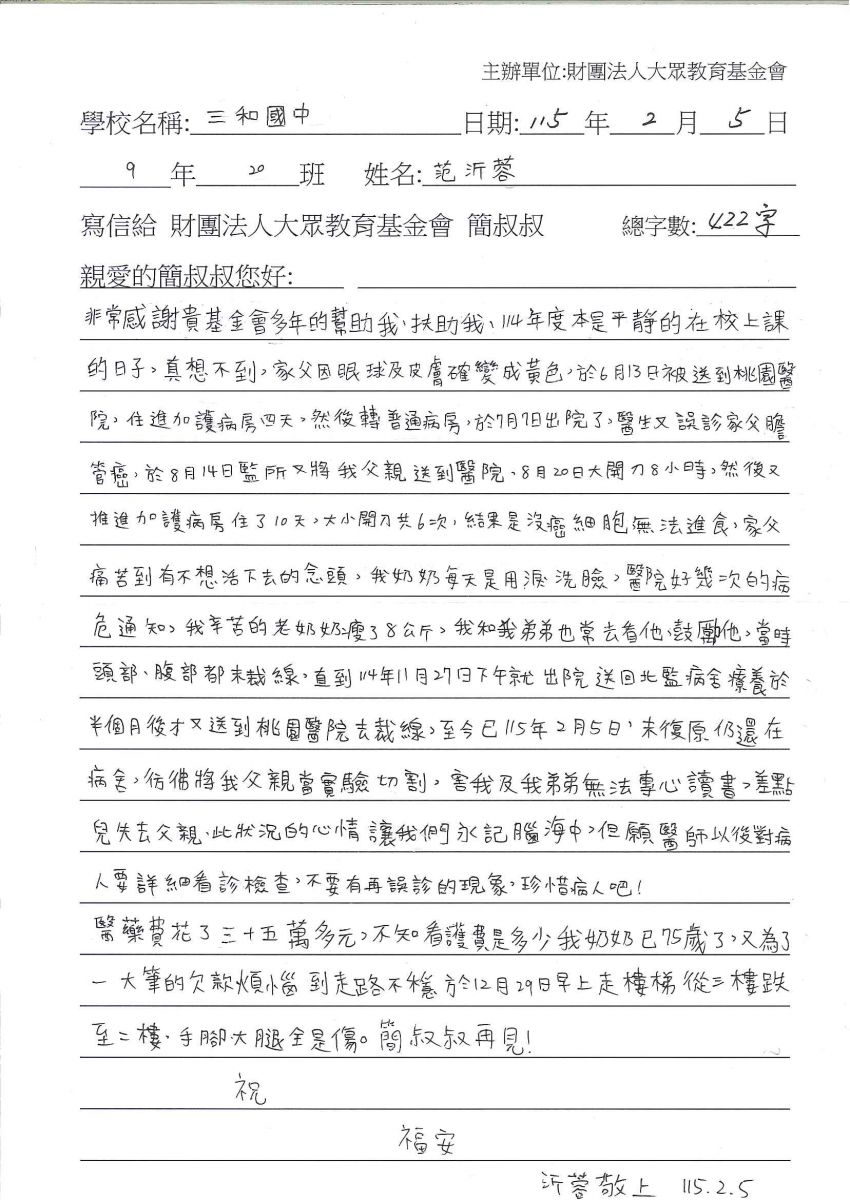 主辦單位:財團法人大眾教育基金會
學校名稱: 三和國中 日期: 115 年 2 月 5 日
9 年 20 班 姓名: 范沂蓉
寫信給 財團法人大眾教育基金會 簡叔叔 總字數: 422字
親愛的簡叔叔您好:
非常感謝貴基金會多年的幫助我、扶助我、114年度本是平靜的在校上課
的日子,真想不到,家父因眼球及皮膚確變成黃色,於6月13日被送到桃園醫
院,住進加護病房四天,然後轉普通病房,於7月7日出院了,醫生又誤診家父膽
管癌,於8月14日監所又將我父親送到醫院、8月20日大開刀8小時,然後又
推進加護病房住了10天,大小開刀共6次,結果是沒癌細胞無法進食,家父
痛苦到有不想活下去的念頭,我奶奶每天是用淚洗臉,醫院好幾次的病
危通知,我辛苦的老奶奶瘦了8公斤,我和我弟弟也常去看他、鼓勵他,當時
頭部、腹部都未裁線,直到114年11月27日下午就出院送回北監病舍療養於
半個月後才又送到桃園醫院去裁線,至今已115年2月5日,未復原仍還在
病舍,彷彿將我父親當實驗切割,害我及我弟弟無法專心讀書,差點
兒失去父親、此狀況的心情讓我們永記腦海中,但願醫師以後對病
人要詳細看診檢查,不要有再誤診的現象,珍惜病人吧!
醫藥費花了三十五萬多元,不知看護費是多少我奶奶已75歲了,又為了
一大筆的欠款煩惱到走路不穩於12月29日早上走樓梯從三樓跌
至二樓、手腳大腿全是傷。簡叔叔再見!
祝
福安
沂蓉敬上 115.2.5